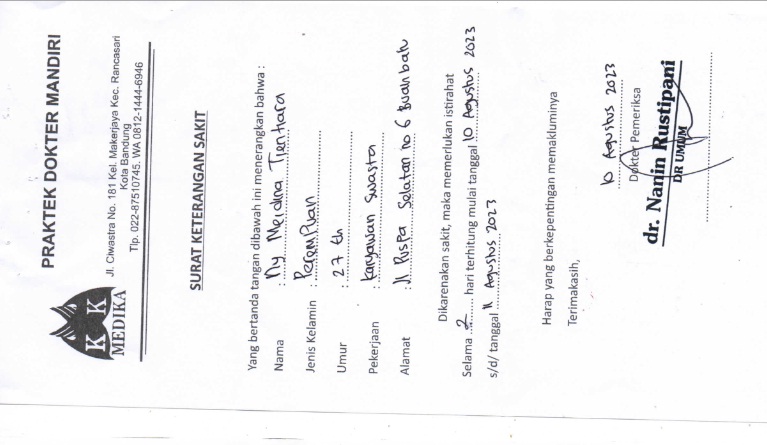 PRAKTEK DOKTER MANDIRI
K K
MEDIKA
Jl. Ciwastra No. 181 Kel. Mekarjaya Kec. Rancasari
Kota Bandung
Tlp. 022-87510745. WA 0812-1444-6946
SURAT KETERANGAN SAKIT
Yang bertanda tangan dibawah ini menerangkan bahwa :
Nama : Ny Meidina Tientiara
Jenis Kelamin : Perempuan
Umur : 27 th
Pekerjaan : Karyawan Swasta
Alamat : Jl Puspa Selatan no 6 Buah batu
Dikarenakan sakit, maka memerlukan istirahat
Selama 2 hari terhitung mulai tanggal 10 Agustus 2023
s/d/ tanggal 11 Agustus 2023
Harap yang berkepentingan memakluminya
Terimakasih,
10 Agustus 2023
Dokter Pemeriksa
dr. Nanin Rustipani
DR UMUM